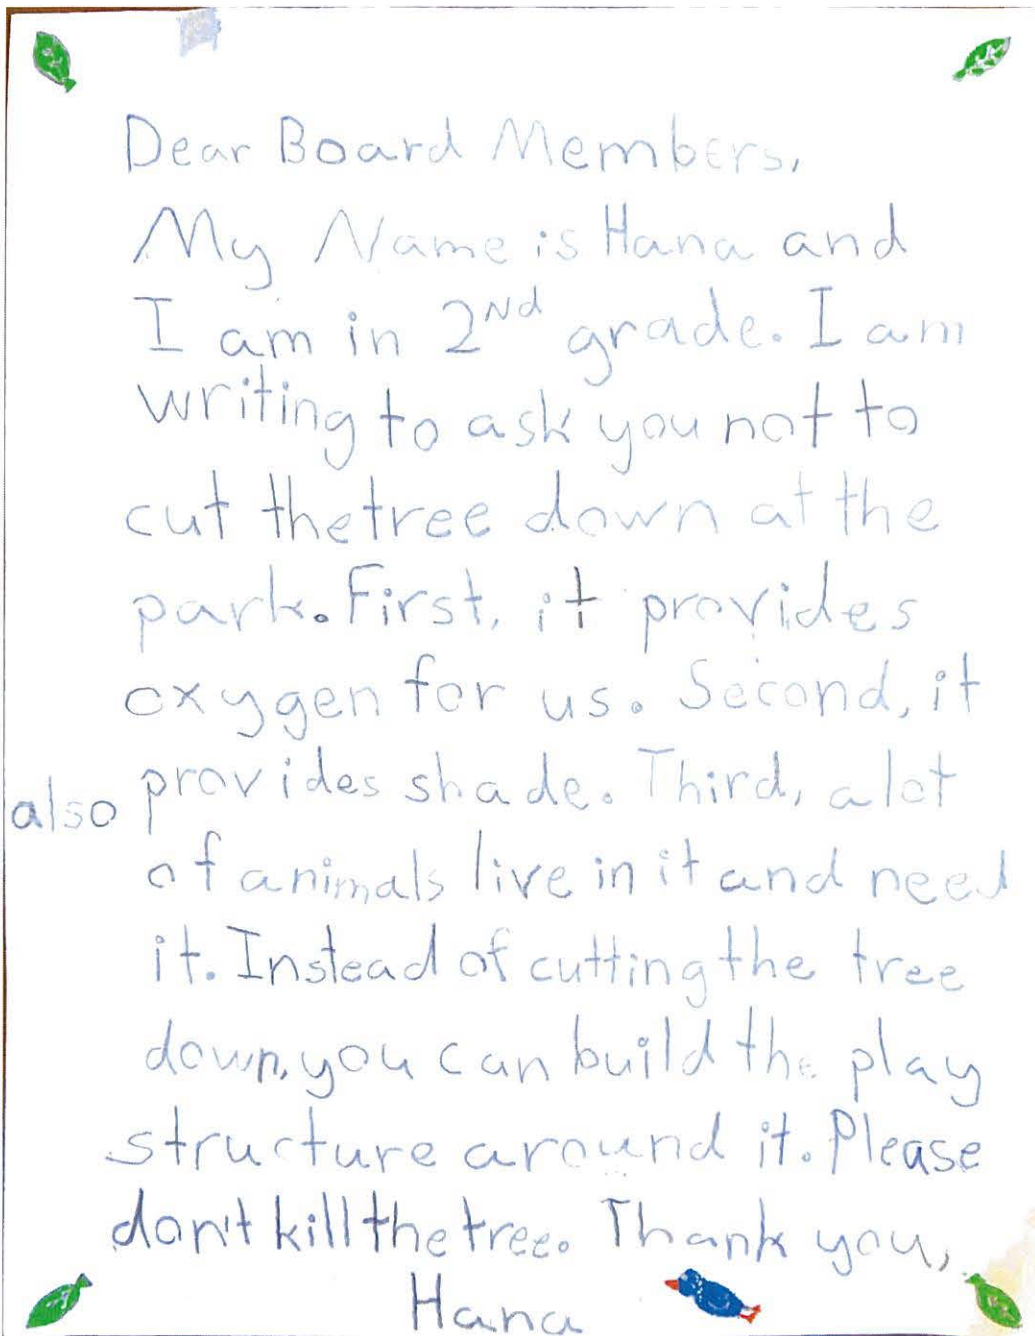 Dear Board Members,
My Name is Hana and
I am in 2Nd grade. I am
writing to ask you not to
cut the tree down at the
park. First, it provides
oxygen for us. Second, it
also provides shade. Third, a lot
of animals live in it and need
it. Instead of cutting the tree
down, you can build the play
structure around it. Please
don't kill the tree. Thank you,
Hana